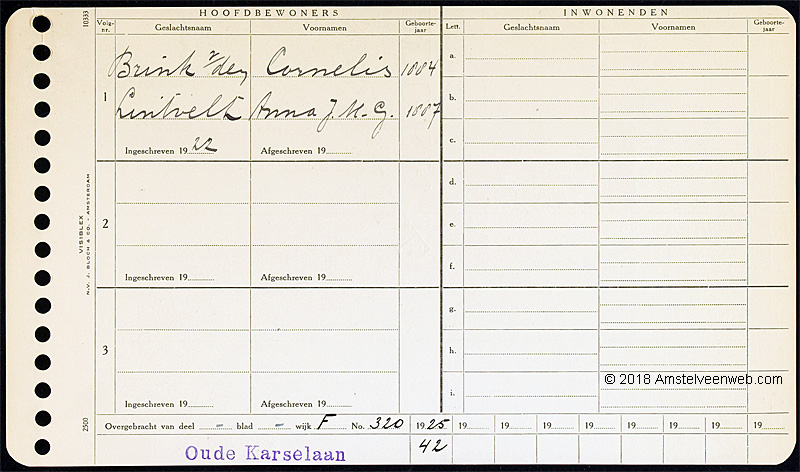 HOOFDBEWONERS INWONENDEN
Volg-nr. Geslachtsnaam Voornamen Geboorte-jaar Lett. Geslachtsnaam Voornamen Geboorte-jaar
1
Brink v/den Cornelis 1884
Lintvelt Anna J. M. G. 1887
Ingeschreven 1922 Afgeschreven 19
a.
b.
c.
2
Ingeschreven 19 Afgeschreven 19
d.
e.
f.
3
Ingeschreven 19 Afgeschreven 19
g.
h.
i.
© 2018 Amstelveenweb.com
Overgebracht van deel - blad - wijk F No. 320 1925 19 19 19 19 19 19 19 19
Oude Karselaan 42
10333
VISIBLEX
N.V. J. BLOCH & CO. - AMSTERDAM
2500